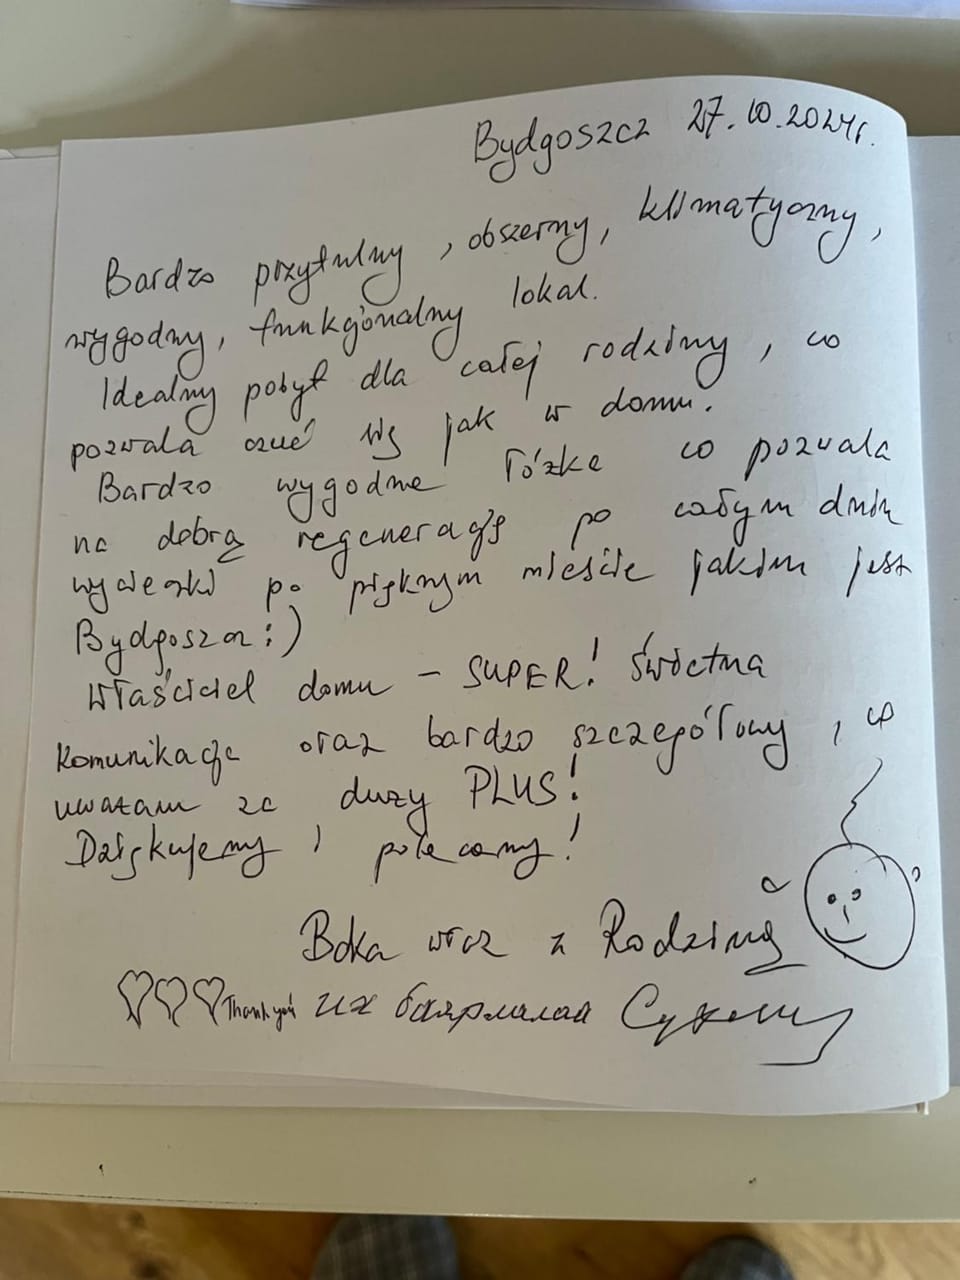 Bydgoszcz 27.10.2024r.
Bardzo przytulny, obszerny, klimatyczny,
wygodny, funkcjonalny lokal.
Idealny pobyt dla całej rodziny, co
pozwala czuć się jak w domu.
Bardzo wygodne łóżke co pozwala
na dobrą regenerację po całym dniu
wycieczki po pięknym mieście jakim jest
Bydgoszcz :)
Właściciel domu - SUPER! Świetna
komunikacja oraz bardzo szczegółowy, co
uważam za duży PLUS!
Dziękujemy i polecamy!
wraz z Rodziną
Thank you их баярлалаа